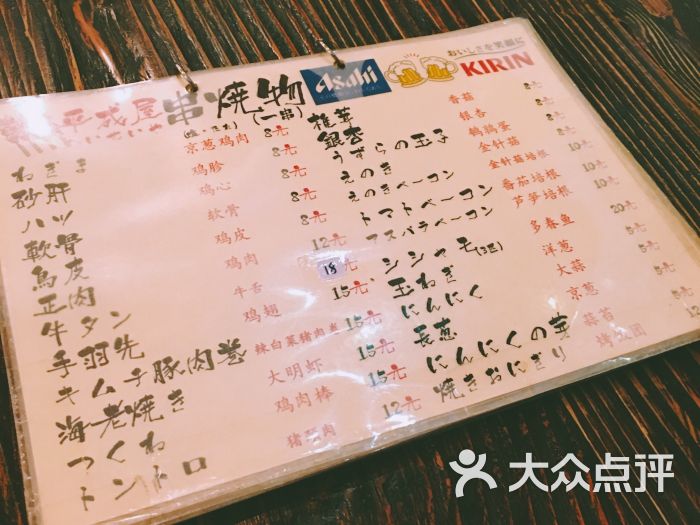 平成屋 串焼物
(一串)
Asahi
おいしさを笑顔に
KIRIN
ねぎま 京葱鸡肉 8元
砂肝 鸡胗 8元
ハツ 鸡心 8元
軟骨 软骨 8元
鳥皮 鸡皮 8元
正肉 鸡肉 12元
牛タン 牛舌 18元
手羽先 鸡翅 15元
キムチ豚肉巻 辣白菜猪肉卷 15元
海老焼き 大明虾 15元
つくね 鸡肉棒 15元
トントロ 猪颈肉 12元
椎茸 香菇 8元
銀杏 银杏 8元
うずらの玉子 鹌鹑蛋 8元
えのき 金针菇 8元
えのきベーコン 金针菇培根 10元
トマトベーコン 番茄培根 10元
アスパラベーコン 芦笋培根 10元
シシャモ(3匹) 多春鱼 20元
玉ねぎ 洋葱 6元
にんにく 大蒜
長葱 京葱
にんにくの芽 蒜苗
焼きおにぎり 烤饭团 12元
大众点评